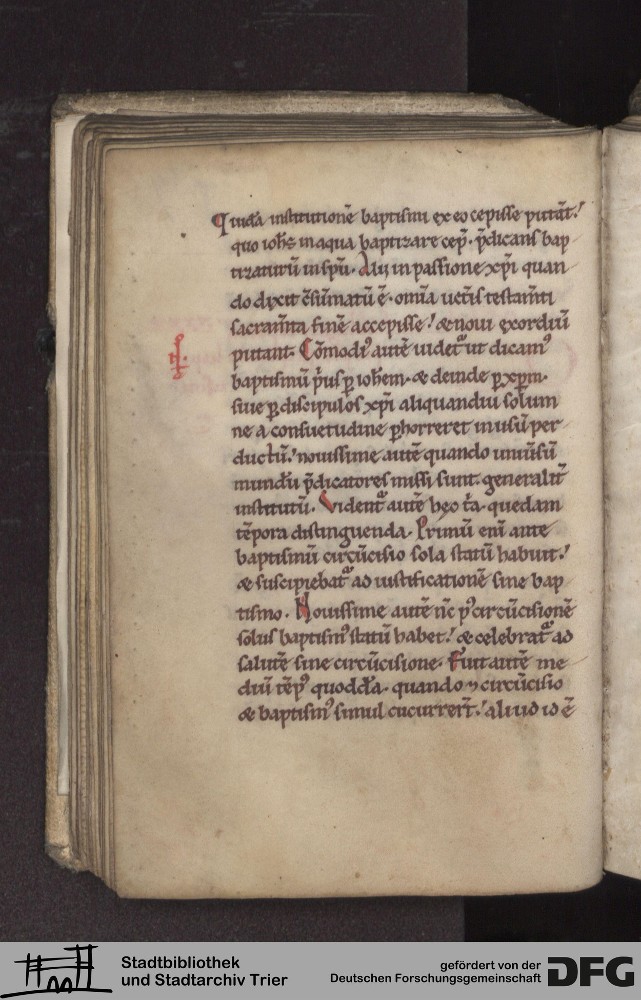 Quidā institutionē baptismi ex eo cepisse putāt.'
quo ioħs in aqua baptizare cep̄. p̄dicans bap
tizaturū in sp̄u. Alij in passione xp̄i quan
do dixit c̄sūmatū ē. om̄ia uet̄is testam̄ti
sacram̄ta finē accepisse.' & noui exordiū
putant. Cōmodi᾽ autē uidet᷑ ut dicam᾽
baptismū p̄us ꝑ ioħem. & deinde ꝑ xp̄m.
siue ꝑ discipulos xp̄i aliquandiu solum
ne a consuetudine ꝑhorreret in usū per
ductū.' nouissime autē quando uniūsū
mundū p̄dicatores missi sunt. generalit̄
institutū. Vident᷑ autē hęc t̄a. quedam
tēpora distinguenda. Primū eni ante
baptismū circūcisio sola statū habuit.'
& suscipiebat᷑ ad iustificationē sine bap
tismo. Nouissime autē nc̄ p᾽ circūcisionē
solus baptism᾽ statū habet.' & celebrat᷑ ad
salutē sine circūcisione. Fuit autē me
diū tēp᾽ quoddā. quando ⁊ circūcisio
& baptism᾽ simul cucurrer̄t.' aliud id ē
Stadtbibliothek
und Stadtarchiv Trier
gefördert von der
Deutschen Forschungsgemeinschaft
DFG